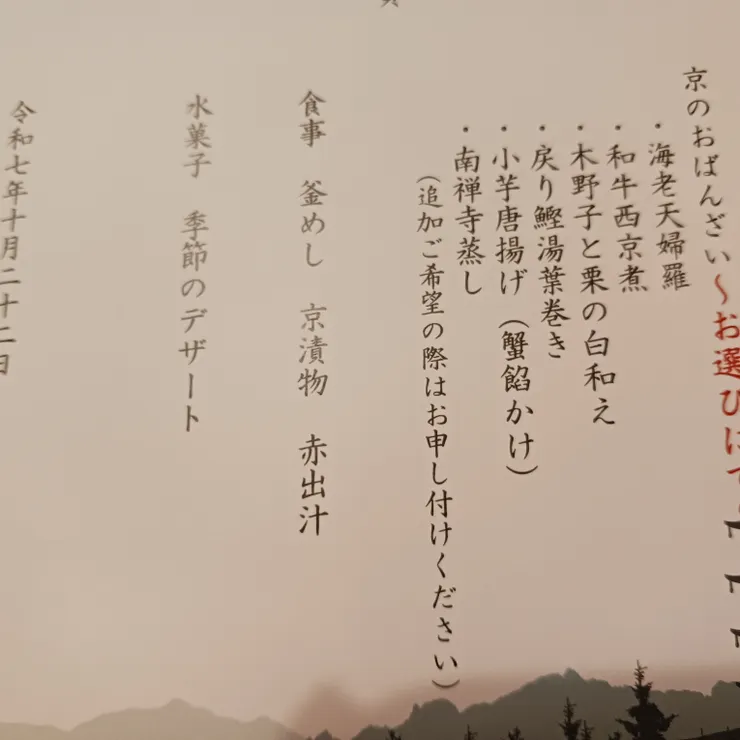 京のおばんざい〜お選びに
・海老天婦羅
・和牛西京煮
・木野子と栗の白和え
・戻り鰹湯葉巻き
・小芋唐揚げ（蟹餡かけ）
・南禅寺蒸し
（追加ご希望の際はお申し付けください）
食事　釜めし　京漬物　赤出汁
水菓子　季節のデザート
令和七年十月二十二日